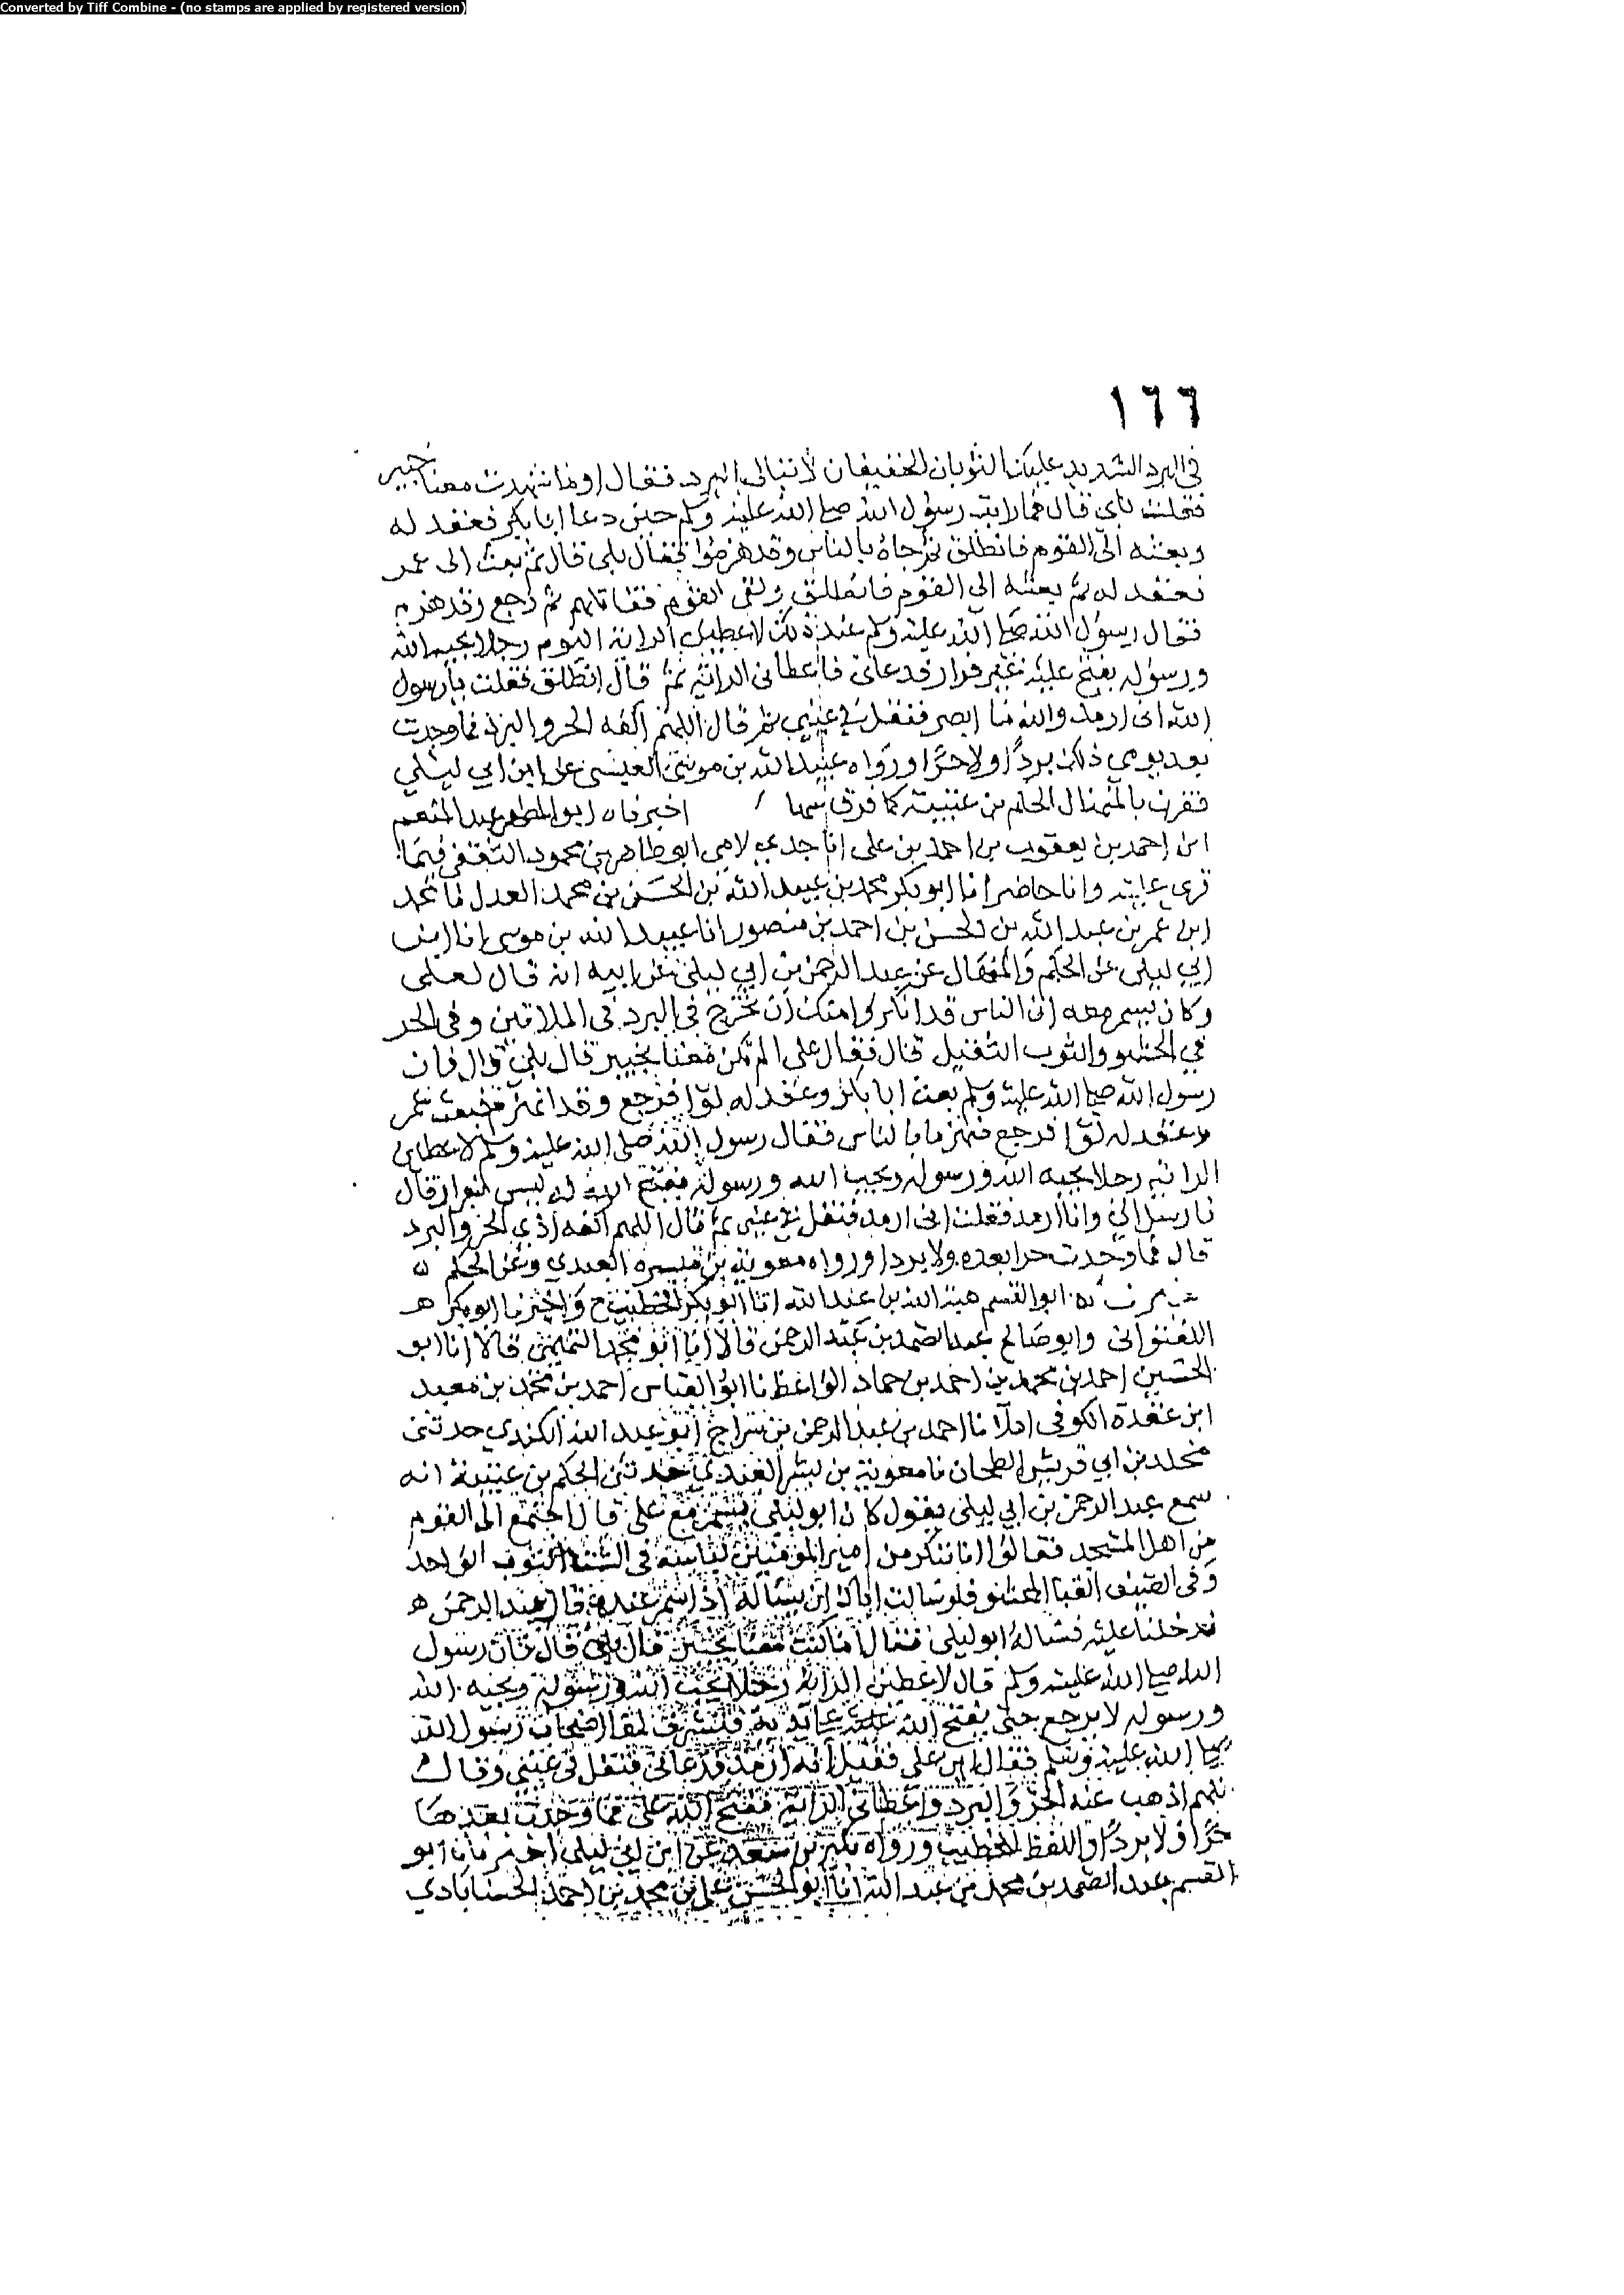 Converted by Tiff Combine - (no stamps are applied by registered version)
١٦٦
في البرد الشديد عليك الثوبان الخفيفان لا تبالي البرد فقال او ما شهدت معنا خيبر
فقلت بلى قال فما رايت رسول الله صلى الله عليه وسلم حين دعا ابا بكر فعقد له
وبعثه الى القوم فانطلق فجاه بالناس وقد هزموا فقال بلى قال ثم بعث الى عمر
فعقد له ثم بعثه الى القوم فانطلق ولقى القوم فقاتلهم ثم رجع وقد هزم
فقال رسول الله صلى الله عليه وسلم عند ذلك لاعطين الراية اليوم رجلا يحبه الله
ورسوله يفتح عليه غير فرار فدعانى فاعطانى الراية ثم قال انطلق فقلت يا رسول
الله انى ارمد والله ما ابصر فتفل في عيني ثم قال اللهم اكفه الحر والبرد فما وجدت
بعد يومي ذلك بردا ولا حرا ورواه عبيد الله بن موسى العبسى عن ابن ابي ليلي
فقرن بالمنهال الحكم بن عتيبة كما فرق اخبرناه ابو المطهر عبد المنعم
ابن احمد بن يعقوب بن احمد بن على انا جدي لامي ابو طاهر بن محمود الثقفي فيما
قرى عليه وانا حاضر انا ابو بكر محمد بن عبيد الله بن الحسن بن محمد العدل نا محمد
ابن عمر بن عبد الله بن الحسن بن احمد بن منصور انا عبيد الله بن موسى انا ابن
ابي ليلى عن الحكم والمنهال عن عبد الرحمن بن ابي ليلى عن ابيه انه قال لعلى
وكان يسمر معه ان الناس قد انكروا منك ان تخرج في البرد في الملاتين وفي الحر
في الحشو والثوب الثقيل قال فقال على الم تكن معنا بخيبر قال بلى قال فان
رسول الله صلى الله عليه وسلم بعث ابا بكر وعقد له لوا فرجع وقد انهزم فبعث عمر
وعقد له لوا فرجع منهزما بالناس فقال رسول الله صلى الله عليه وسلم لاعطين
الراية رجلا يحبه الله ورسوله ويحب الله ورسوله يفتح الله له ليس بفرار قال
فارسل الي وانا ارمد فقلت انى ارمد فتفل في عيني ثم قال اللهم اكفه اذي الحر والبرد
قال فما وجدت حرا بعده ولا بردا ورواه معوية بن ميسرة العبدي وعن الحكم
ابو القسم هبة الله بن عبد الله انا ابو بكر الخطيب ح واخبرنا ابو بكر
اللفتوانى وابو صالح عبد الصمد بن عبد الرحمن قالا انا ابو محمد التميمي قالا انا ابو
الحسين احمد بن محمد بن احمد بن حماد الواعظ نا ابو العباس احمد بن محمد بن سعيد
ابن عقدة الكوفي املا نا احمد بن عبد الرحمن بن سراج ابو عبد الله الكندي حدثني
مخلد بن ابي قريش الطحان نا معوية بن حدثني الحكم بن عتيبة انه
سمع عبد الرحمن بن ابي ليلى يقول كان ابو ليلى يسمر مع على قال اجتمع الى القوم
من اهل المسجد فقالوا انا ننكر من امير المومنين لباسه في الشتا الثوب الواحد
وفي الصيف القبا المحشو فلو سالت اباك ان يساله اذا سمر عنده قال عبد الرحمن
فدخلنا عليه فساله ابو ليلى فقال اما كنت معنا بخيبر قال بلى قال فان رسول
الله صلى الله عليه وسلم قال لاعطين الراية رجلا يحب الله ورسوله ويحبه الله
ورسوله لا يرجع حتى يفتح الله عليه فتشرف لها اصحاب رسول الله
صلى الله عليه وسلم فقال اين على فقيل انه ارمد فدعانى فتفل في عيني وقال
اللهم اذهب عنه الحر والبرد واعطانى الراية ففتح الله على فما وجدت بعدها
حرا ولا بردا واللفظ للخطيب ورواه بكير بن سعد عن ابن ابي ليلى اخبرناه ابو
القسم عبد الصمد بن محمد بن عبد الله انا ابو الحسن على بن محمد بن احمد الحسناباذي